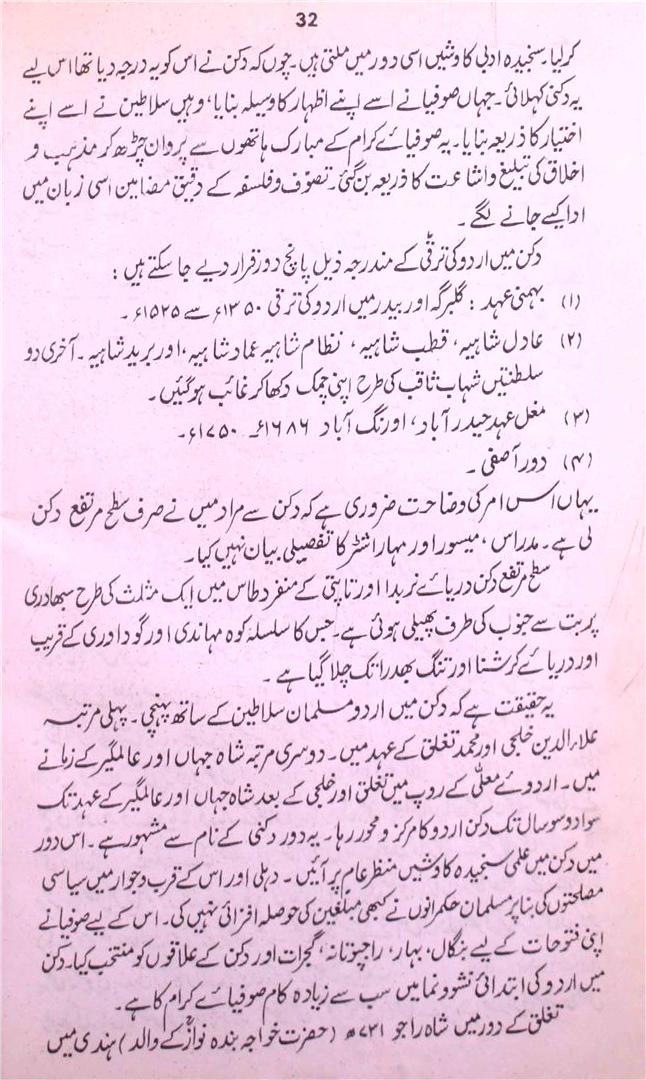 32
کرلیا۔ سنجیدہ ادبی کاوشیں اسی دور میں ملتی ہیں۔ چوں کہ دکن نے اس کو یہ درجہ دیا تھا اس لیے
یہ دکنی کہلائی۔ جہاں صوفیا نے اسے اپنے اظہار کا وسیلہ بنایا، وہیں سلاطین نے اسے اپنے
اختیار کا ذریعہ بنایا۔ یہ صوفیائے کرام کے مبارک ہاتھوں سے پروان چڑھ کر مذہب و
اخلاق کی تبلیغ و اشاعت کا ذریعہ بن گئی۔ تصوّف و فلسفہ کے دقیق مضامین اسی زبان میں
ادا کیے جانے لگے۔
دکن میں اردو کی ترقی کے مندرجہ ذیل پانچ دور قرار دیے جا سکتے ہیں :
(۱) بہمنی عہد : گلبرگہ اور بیدر میں اردو کی ترقی ۱۳۵۰ء سے ۱۵۲۵ء۔
(۲) عادل شاہیہ، قطب شاہیہ، نظام شاہیہ عماد شاہیہ، اور برید شاہیہ۔ آخری دو
سلطنتیں شہاب ثاقب کی طرح اپنی چمک دکھا کر غائب ہو گئیں۔
(۳) مغل عہد حیدرآباد، اورنگ آباد ۱۶۸۶ء۔ ۱۷۵۰ء۔
(۴) دور آصفی۔
یہاں اس امر کی وضاحت ضروری ہے کہ دکن سے مراد میں نے صرف سطح مرتفع دکن
لی ہے۔ مدراس، میسور اور مہاراشٹر کا تفصیلی بیان نہیں کیا۔
سطح مرتفع دکن دریائے نربدا اور تاپتی کے منفرد طاس میں ایک مثلث کی طرح سبھادری
پربت سے جنوب کی طرف پھیلی ہوئی ہے۔ جس کا سلسلہ کوہ مہاندی اور گوداوری کے قریب
اور دریائے کرشنا اور تنگ بھدرا تک چلا گیا ہے۔
یہ حقیقت ہے کہ دکن میں اردو مسلمان سلاطین کے ساتھ پہنچی۔ پہلی مرتبہ
علاء الدین خلجی اور محمد تغلق کے عہد میں۔ دوسری مرتبہ شاہ جہاں اور عالمگیر کے زمانے
میں۔ اردوئے معلّٰی کے روپ میں تغلق اور خلجی کے بعد شاہ جہاں اور عالمگیر کے عہد تک
سوا دو سو سال تک دکن اردو کا مرکز و محور رہا۔ یہ دور دکنی کے نام سے مشہور ہے۔ اس دور
میں دکن میں علمی سنجیدہ کاوشیں منظر عام پر آئیں۔ دہلی اور اس کے قرب و جوار میں سیاسی
مصلحتوں کی بنا پر مسلمان حکمرانوں نے کبھی مبلّغین کی حوصلہ افزائی نہیں کی۔ اس کے لیے صوفیا نے
اپنی فتوحات کے لیے بنگال، بہار، راجپوتانہ، گجرات اور دکن کے علاقوں کو منتخب کیا۔ دکن
میں اردو کی ابتدائی نشوونما میں سب سے زیادہ کام صوفیائے کرام کا ہے۔
تغلق کے دور میں شاہ راجو ۷۳۱ھ (حضرت خواجہ بندہ نوازؒ کے والد) ہندی میں